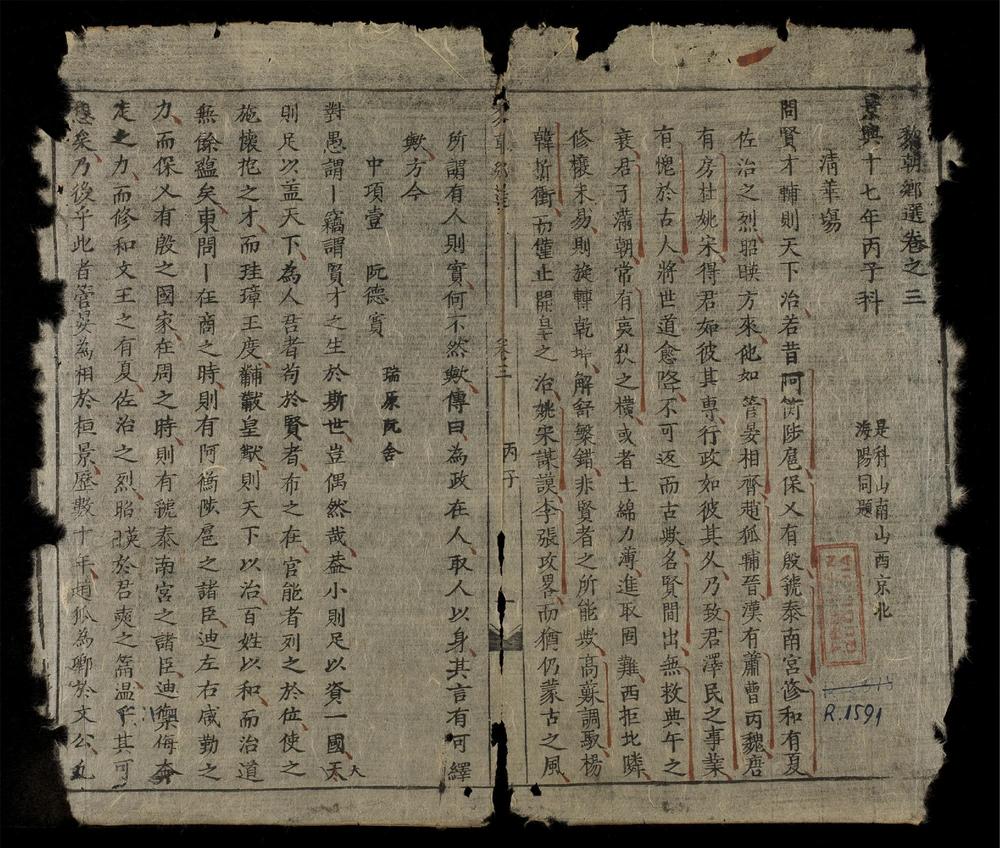 黎朝鄉選卷之三
景興十七年丙子科
是科山南山西京北
海陽同題
清華場
問賢才輔則天下治若昔阿衡陟扈保乂有殷虢泰南宮修和有夏
佐治之烈昭映方來他如管晏相齊趙狐輔晉漢有蕭曹丙魏唐
有房杜姚宋得君如彼其專行政如彼其久乃致君澤民之事業
有愧於古人將世道愈降不可返而古歟名賢間出無救典午之
衰君子滿朝常有夷狄之橫或者土綿力薄進取罔難西拒北隣
修攘未易則旋轉乾坤解舒繁錯非賢者之所能歟高蘇調馭楊
韓折衝而僅止開皇之治姚宋謀謨李張攻畧而猶仍蒙古之風
卷三
丙子
所謂有人則實何不然歟傳曰為政在人取人以身其言有可繹
歟方今
中項壹 阮德實
瑞原阮舍
對愚謂竊謂賢才之生於斯世豈偶然哉葢小則足以資一國大
則足以盖天下為人君者茍於賢者布之在官能者列之於位使之
施懷抱之才而珪璋王度黼黻皇猷則天下以治百姓以和而治道
無餘蘊矣東問在商之時則有阿衡陟扈之諸臣迪左右咸勤之
力而保乂有殷之國家在周之時則有虢泰南宮之諸臣迪禦侮奔
走之力而修和文王之有夏佐治之烈昭暎於君奭之篇温乎其可
想矣乃後乎此者管晏為相於桓景歷數十年趙狐為卿於文公九
R.1591